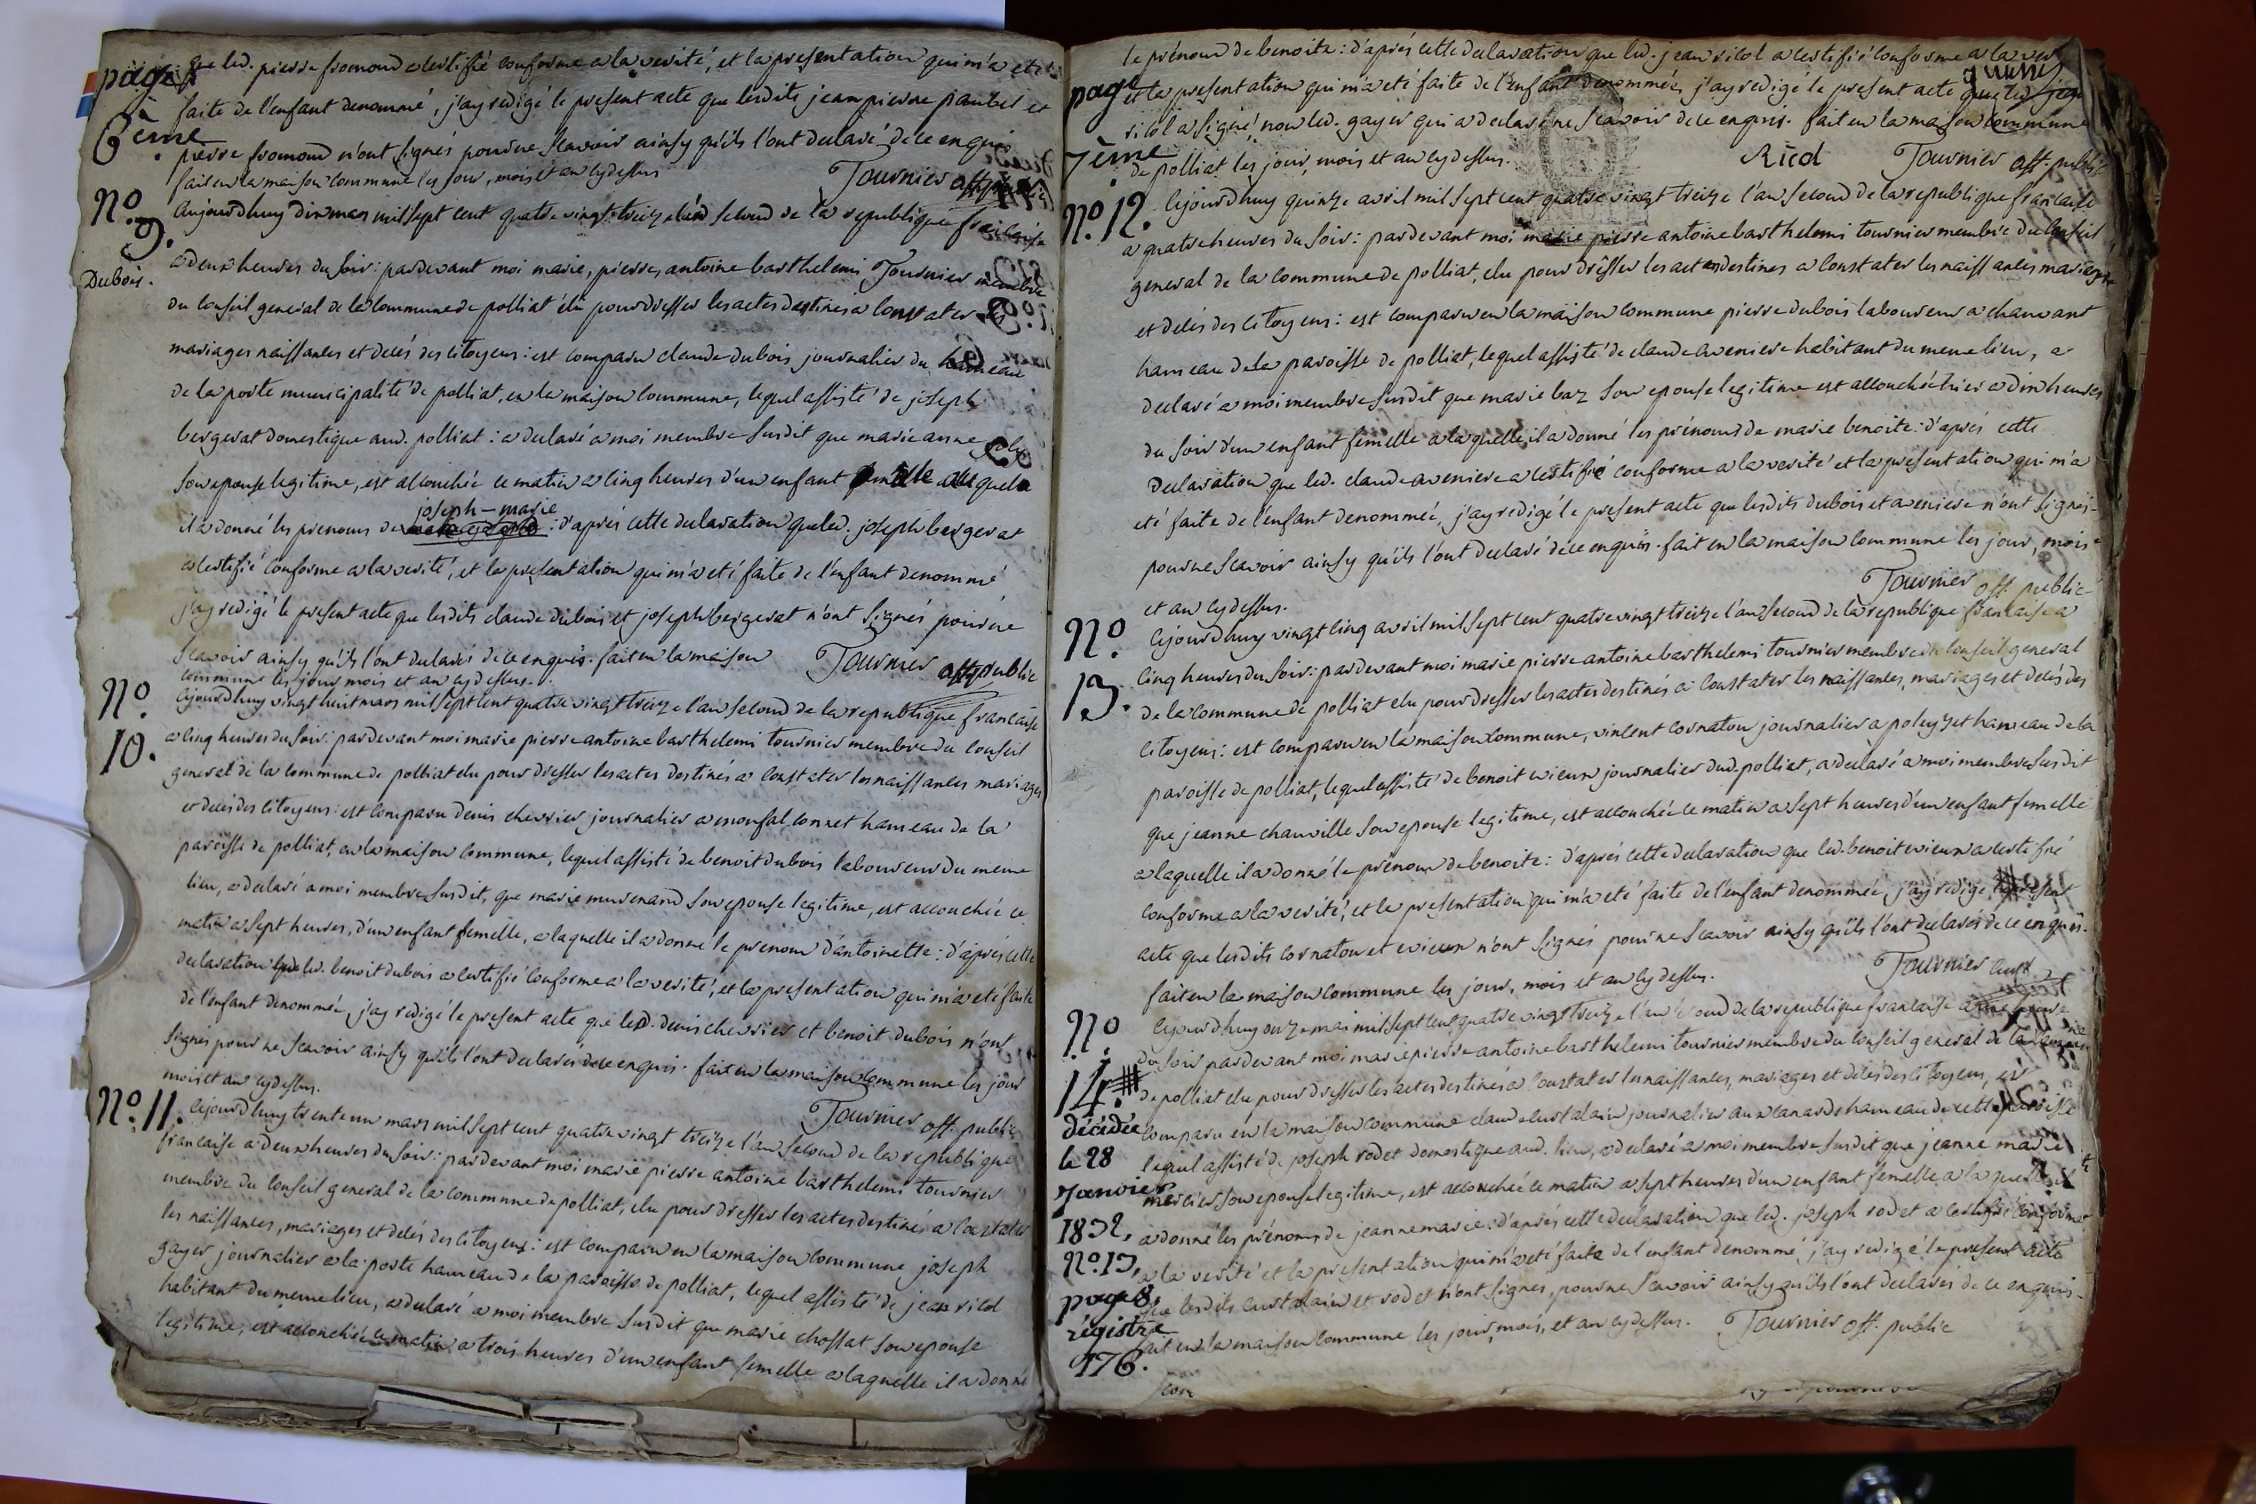 page
6ème
que led. pierre fromond a certifié conforme a la verité, et la presentation qui m'a eté
faite de l'enfant denommé, j'ay redigé le present acte que lesdits jean pierre paubel et
pierre fromond n'ont signés pour ne scavoir ainsy qu'ils l'ont declaré de ce enquis
fait en la maison commune les jour, mois et an cydessus Tournier off. public
No.
9.
Dubois.
aujourdhuy dix mars mil sept cent quatre vingt treize l'an second de la republique francaise
a deux heures du soir: pardevant moi marie, pierre, antoine barthelemi Tournier membre
du conseil general de la commune de polliat élu pour dresser les actes destinés a constater les
mariages naissances et decés des citoyens: est comparu claude dubois journalier du hameau
de la poste municipalité de polliat, en la maison commune, lequel assisté de joseph
bergerat domestique aud. polliat: a declaré a moi membre susdit que marie anne
son epouse legitime, est accouchée ce matin a cinq heures d'un enfant auquel
joseph-marie
il a donné les prenoms de : d'aprés cette declaration que led. joseph bergerat
a certifié conforme a la verité, et la presentation qui m'a eté faite de l'enfant denommé
j'ay redigé le present acte que lesdits claude dubois et joseph bergerat n'ont signés pour ne
scavoir ainsy qu'ils l'ont declarés de ce enquis. fait en la maison Tournier off public
commune les jour mois et an cydessus.
No.
10.
Cejourdhuy vingt huit mars mil sept cent quatre vingt treize l'an second de la republique francaise
a cinq heures du soir: pardevant moi marie pierre antoine barthelemi tournier membre du conseil
general de la commune de polliat elu pour dresser les actes destinés a constater les naissances mariages
et decés des citoyens: est comparu denis chevrier journalier a monfalconnet hameau de la
paroisse de polliat, en la maison commune, lequel assisté de benoit dubois laboureur du meme
lieu, a declaré a moi membre susdit, que marie murenand son epouse legitime, est accouchée ce
matin a sept heures, d'un enfant femelle, a laquelle il a donné le prenom d'antoinette: d'aprés cette
declaration que led. benoit dubois a certifié conforme a la verité, et la presentation qui m'a eté faite
de l'enfant denommée, j'ay redigé le present acte que led. denis chevrier et benoit dubois n'ont
signés pour ne scavoir ainsy qu'ils l'ont declarés de ce enquis. fait en la maison commune les jour
mois et an cydessus. Tournier off. public
No. 11.
Cejourdhuy trente un mars mil sept cent quatre vingt treize l'an second de la republique
francaise a deux heures du soir: pardevant moi marie pierre antoine barthelemi tournier
membre du conseil general de la commune de polliat, elu pour dresser les actes destinés a constater
les naissances, mariages et decés des citoyens: est comparu en la maison commune joseph
gayer journalier a la poste hameau de la paroisse de polliat, lequel assisté de jean ricol
habitant du meme lieu, a declaré a moi membre susdit que marie chossat son epouse
legitime, est accouchée ce matin a trois heures d'un enfant femelle a laquelle il a donné
page
7ème
le prénom de benoite: d'aprés cette declaration que led. jean ricol a certifié conforme a la
et la presentation qui m'a eté faite de l'enfant denommée, j'ay redigé le present acte que led. jean
ricol a signé, non led. gayer qui a declaré ne scavoir de ce enquis. fait en la maison commune
de polliat les jour, mois et an cydessus. Ricol Tournier off. public
No. 12.
Cejourdhuy quinze avril mil sept cent quatre vingt treize l'an second de la republique francaise
a quatre heures du soir: pardevant moi marie pierre antoine barthelemi tournier membre du conseil
general de la commune de polliat, elu pour drésser les actes destines a constater les naissances mariages
et decés des citoyens: est comparu en la maison commune pierre dubois laboureur a chanvant
hameau de la paroisse de polliat, lequel assisté de claude aveniere habitant du meme lieu, a
declaré a moi membre susdit que marie baz son epouse legitime est accouchée hier a dix heures
du soir d'un enfant femelle a laquelle il a donné les prénoms de marie benoite: d'aprés cette
declaration que led. claude aveniere a certifié conforme a la verité et la presentation qui m'a
eté faite de l'enfant denommée, j'ay redigé le present acte que lesdits dubois et aveniere n'ont signés
pour ne scavoir ainsy qu'ils l'ont declaré de ce enquis. fait en la maison commune les jour, mois
et an cydessus. Tournier off. public
No.
13.
Cejourdhuy vingt cinq avril mil sept cent quatre vingt treize l'an second de la republique francaise a
cinq heures du soir: pardevant moi marie pierre antoine barthelemi tournier membre du conseil general
de la commune de polliat elu pour dresser les actes destinés a constater les naissances, mariages et decés des
citoyens: est comparu en la maison commune, vincent cornaton journalier a poleyzet hameau de la
paroisse de polliat, lequel assisté de benoit vieux journalier dud. polliat, a declaré a moi membre susdit
que jeanne chanville son epouse legitime, est accouchée ce matin a sept heures d'un enfant femelle
a laquelle il a donné le prénom de benoite: d'aprés cette declaration que led. benoit vieux a certifié
conforme a la verité, et la presentation qui m'a eté faite de l'enfant denommée, j'ay redigé le present
acte que lesdits cornaton et vieux n'ont signés pour ne scavoir ainsy qu'ils l'ont declarés de ce enquis.
fait en la maison commune les jour, mois et an cydessus. Tournier
No.
14.
décédée
le 28
Janvier
1832,
No. 13,
page 8,
régistre
176.
Cejourdhuy onze mai mil sept cent quatre vingt treize l'an second de la republique francaise a une heure
du soir pardevant moi marie pierre antoine barthelemi tournier membre du conseil general de la commune
de polliat elu pour dresser les actes destinés a constater les naissances, mariages et decés des citoyens, est
comparu en la maison commune claude curtalain journalier aux canards hameau de cette paroisse
lequel assisté de joseph rodet domestique aud. lieu, a declaré a moi membre susdit que jeanne marie
mercier son epouse legitime, est accouchée ce matin a sept heures d'un enfant femelle a laquelle il
a donné les prénoms de jeanne marie: d'aprés cette declaration que led. joseph rodet a certifié conforme
a la verité et la presentation qui m'a eté faite de l'enfant denommé, j'ay redigé le present acte
que lesdits curtalain et rodet n'ont signés, pour ne scavoir ainsy qu'ils l'ont declarés de ce enquis.
fait en la maison commune les jour, mois, et an cydessus. Tournier off. public